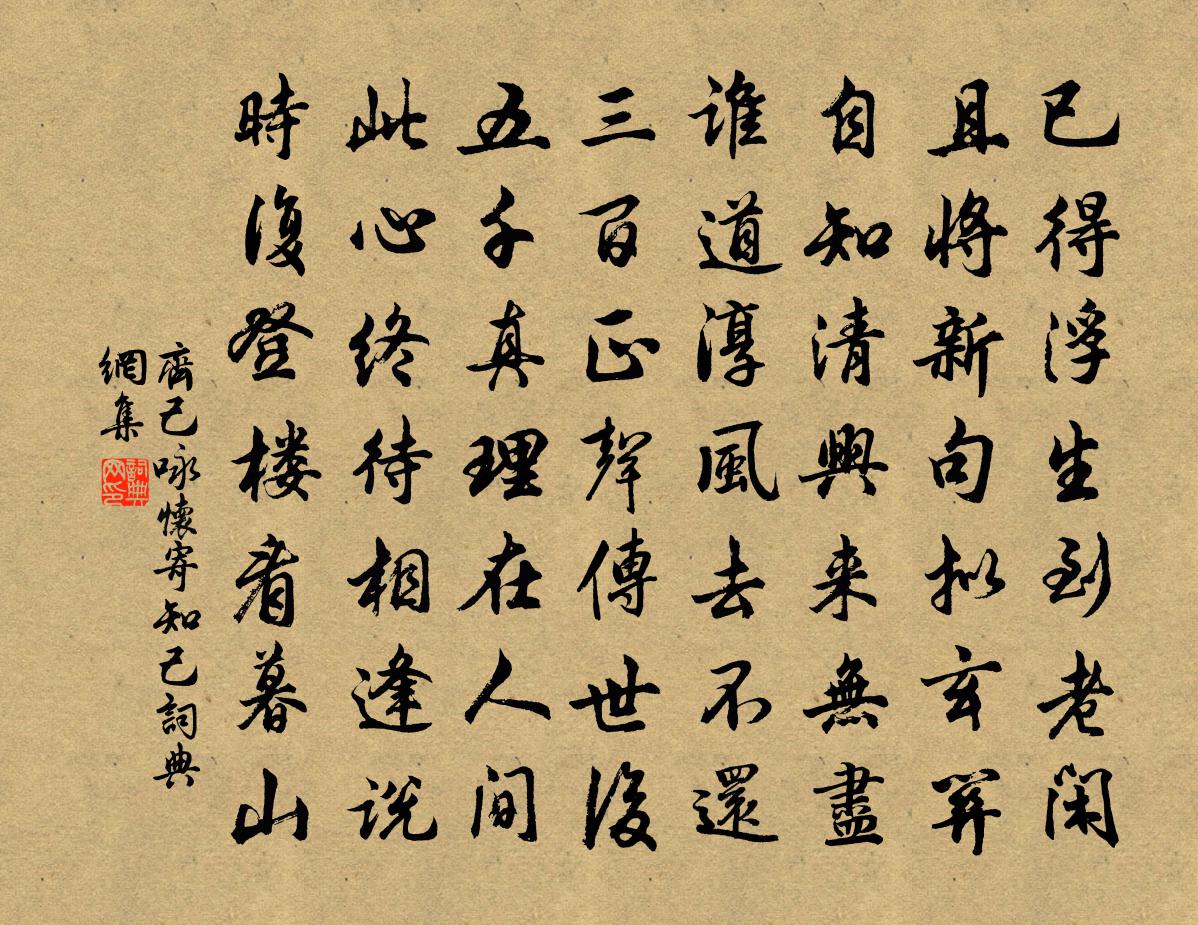 已得浮生到老閑
且將新句拟玄關
自知清興来無盡
誰道淳風去不還
三百正聲傳世後
五千真理在人間
此心終待相逢説
時復登楼看暮山
齊己咏懷寄知己詞典
網集
詞典
网印